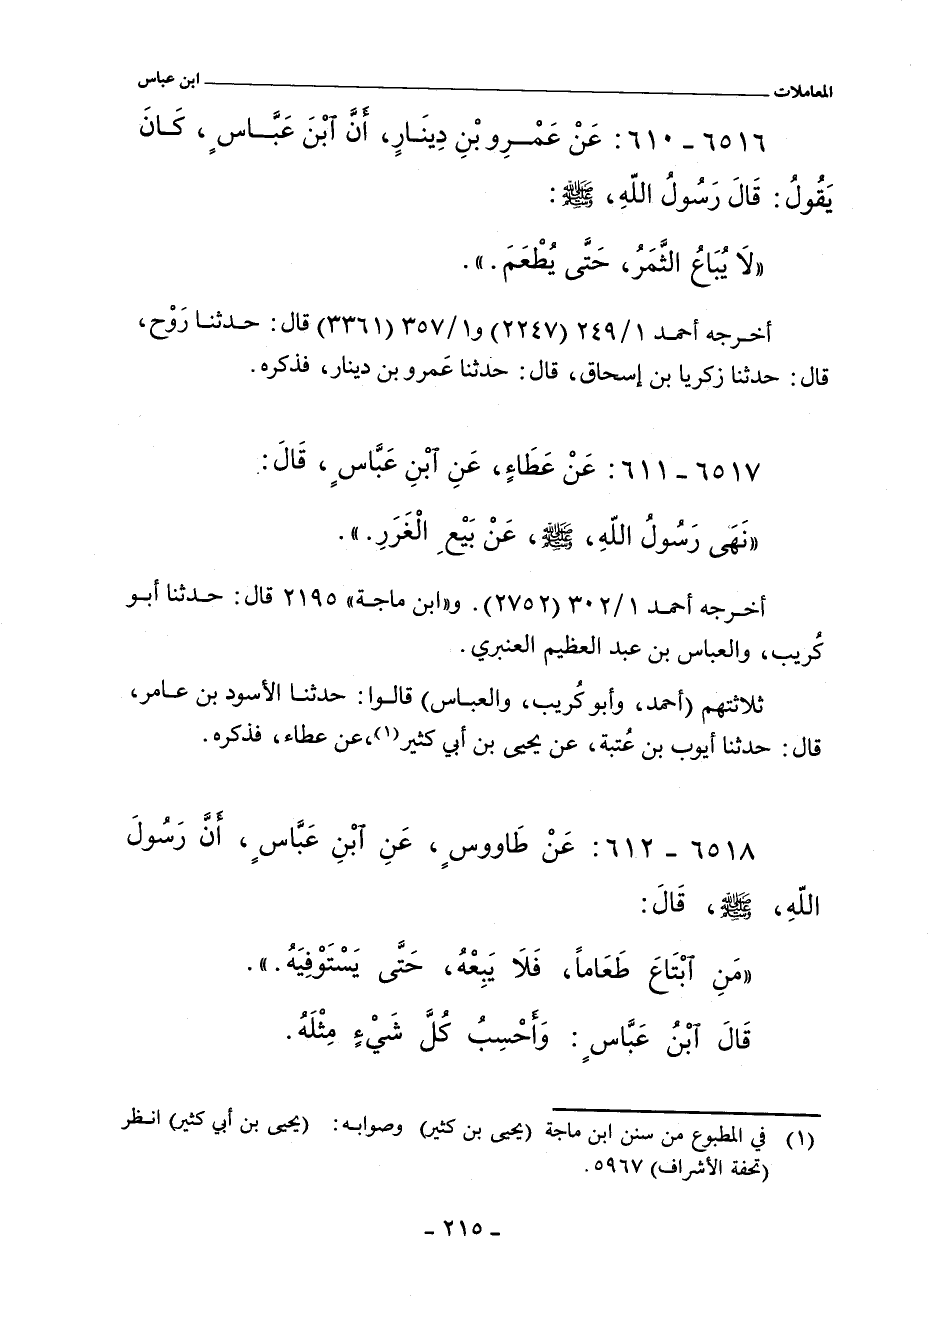 المعاملات ــــــــــــــــــــــــــــــــــــــــ ابن عباس
٦٥١٦ ـ ٦١٠: عَنْ عَمْـرِو بْنِ دِينَارٍ، أَنَّ ٱبْنَ عَبَّـاسٍ، كَـانَ
يَقُولُ: قَالَ رَسُولُ اللّٰهِ، ﷺ:
«لَا يُبَاعُ الثَّمَرُ، حَتَّى يُطْعَمَ.».
أخـرجه أحمـد ١/٢٤٩ (٢٢٤٧) و١/٣٥٧ (٣٣٦١) قال: حـدثنـا رَوْح،
قال: حدثنا زكريا بن إسحاق، قال: حدثنا عَمرو بن دينار، فذكره.
٦٥١٧ ـ ٦١١: عَنْ عَطَاءٍ، عَنِ ٱبْنِ عَبَّاسٍ، قَالَ:
«نَهَى رَسُولُ اللّٰهِ، ﷺ، عَنْ بَيْعِ الْغَرَرِ.».
أخـرجه أحمـد ١/٣٠٢ (٢٧٥٢). و«ابن ماجـة» ٢١٩٥ قال: حـدثنا أبـو
كُريب، والعباس بن عبد العظيم العنبري.
ثلاثتهم (أحمد، وأبو كُريب، والعبـاس) قالـوا: حدثنـا الأسود بن عـامر،
قال: حدثنا أيوب بن عُتبة، عن يحيى بن أبي كثير(١)، عن عطاء، فذكره.
٦٥١٨ ـ ٦١٢: عَنْ طَاووسٍ، عَنِ ٱبْنِ عَبَّاسٍ، أَنَّ رَسُولَ
اللّٰهِ، ﷺ، قَالَ:
«مَنِ ٱبْتَاعَ طَعَاماً، فَلَا يَبِعْهُ، حَتَّى يَسْتَوْفِيَهُ.».
قَالَ ٱبْنُ عَبَّاسٍ: وَأَحْسِبُ كُلَّ شَيْءٍ مِثْلَهُ.
(١) في المطبوع من سنن ابن ماجة (يحيى بن كثير) وصوابـه: (يحيى بن أبي كثير) انـظر
(تحفة الأشراف) ٥٩٦٧.
ـ ٢١٥ ـ